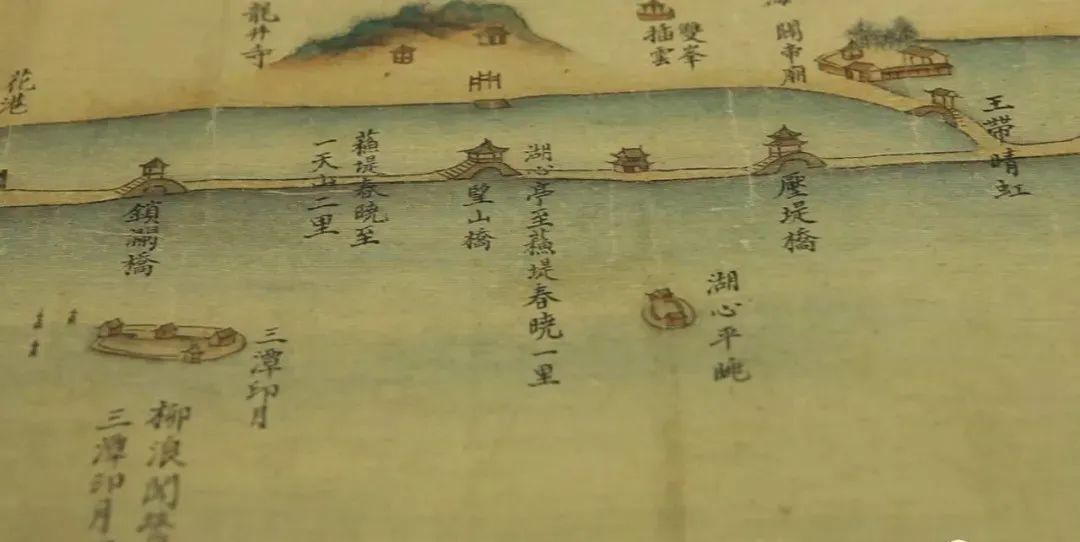 花港
龍井寺
雙峯
插雲
關帝廟
王帶晴虹
壓堤橋
湖心亭至蘓堤春曉一里
望山橋
蘓堤春曉至
一天山二里
鎖瀾橋
湖心平眺
三潭印月
柳浪聞鶯
三潭印月